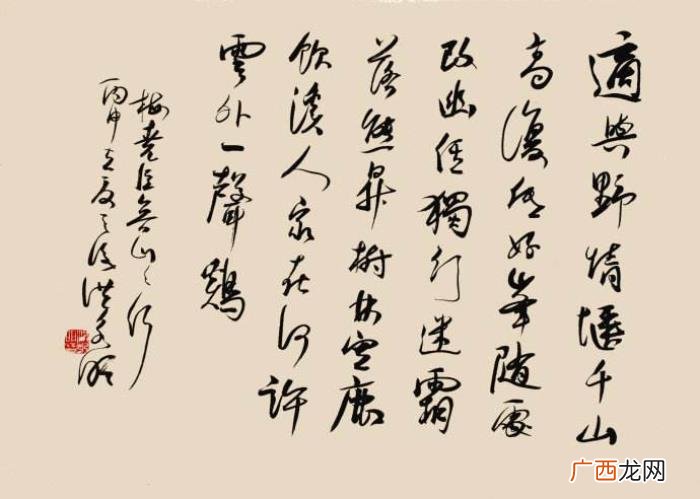 適與野情愜千山
高復低好峯隨處
改幽徑獨行迷霜
落熊昇樹林空鹿
飲溪人家在何許
雲外一聲鷄
梅堯臣魯山々行
丙申立夏之後洪
广西龙网